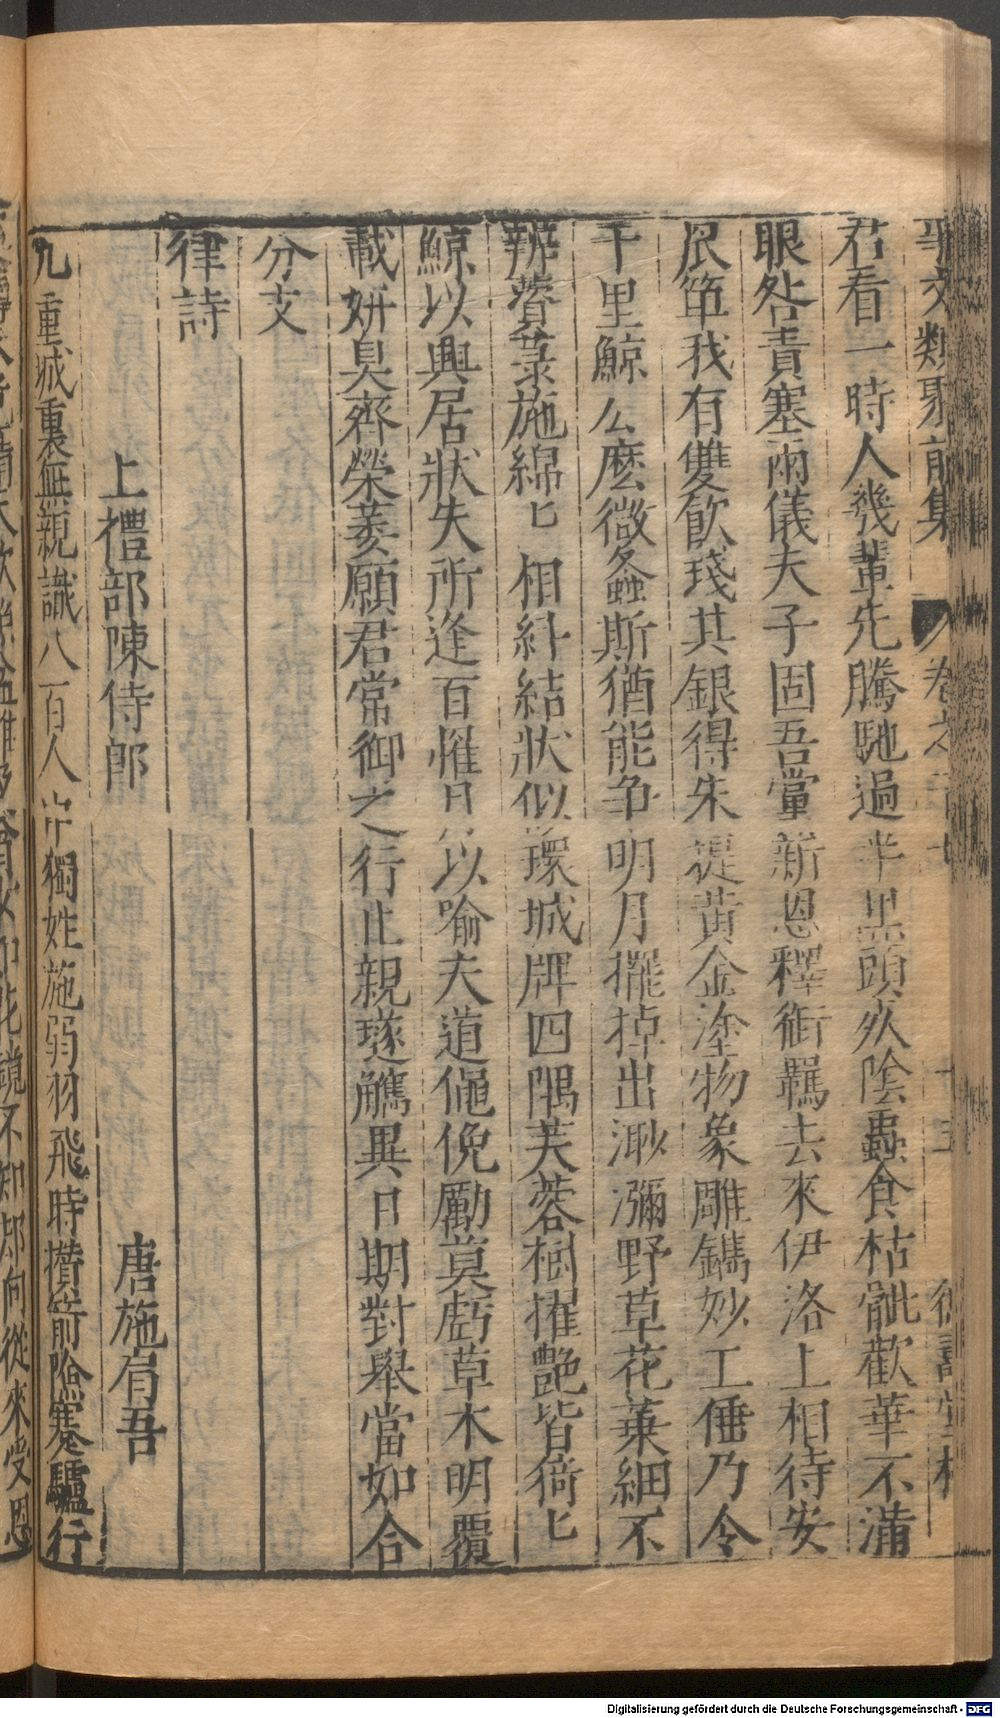 事文類聚前集 卷之 十五 德壽堂梓
君看一時人幾輩先騰馳過半黑頭死陰蟲食枯骴歡華不滿
眼咎責塞兩儀夫子固吾黨新恩釋銜羈去來伊洛上相待安
眾箄我有雙飲琖其銀得朱提黃金塗物象雕鐫妙工倕乃令
千里鯨么麼微螽斯猶能爭明月擺掉出渺瀰野草花葉細不
辨薋菉葹綿匕相糾結狀似環城陴四隅芙蓉樹擢艷皆猗匕
鯨以興居狀失所逢百罹月以喻夫道僶俛勵莫虧草木明覆
載妍臭齊榮萎願君常御之行止親璲觿異日期對舉當如合
分支
律詩
上禮部陳侍郎 唐施肩吾
九重城裏無親識八百人中獨姓施弱羽飛時攢箭險蹇驢行
Digitalisierung gefördert durch die Deutsche Forschungsgemeinschaft - DFG